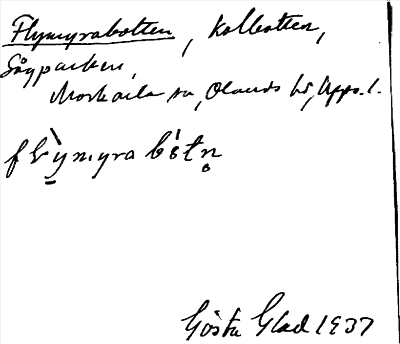 Flymyrabotten, Kolbotten,
Sågparken,
Morkarla sn, Olands hd, Upps. l.
flỳmyra bótn̥
Gösta Glad 1937